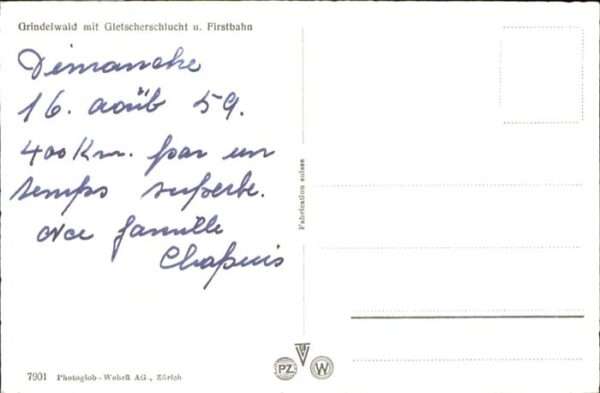 Grindelwald mit Gletscherschlucht u. Firstbahn
Dimanche
16. août 59.
400 Km. par un
temps superbe.
avec famille
Chapuis
Fabrication suisse
PZ
W
7901 Photoglob-Wehrli AG., Zürich